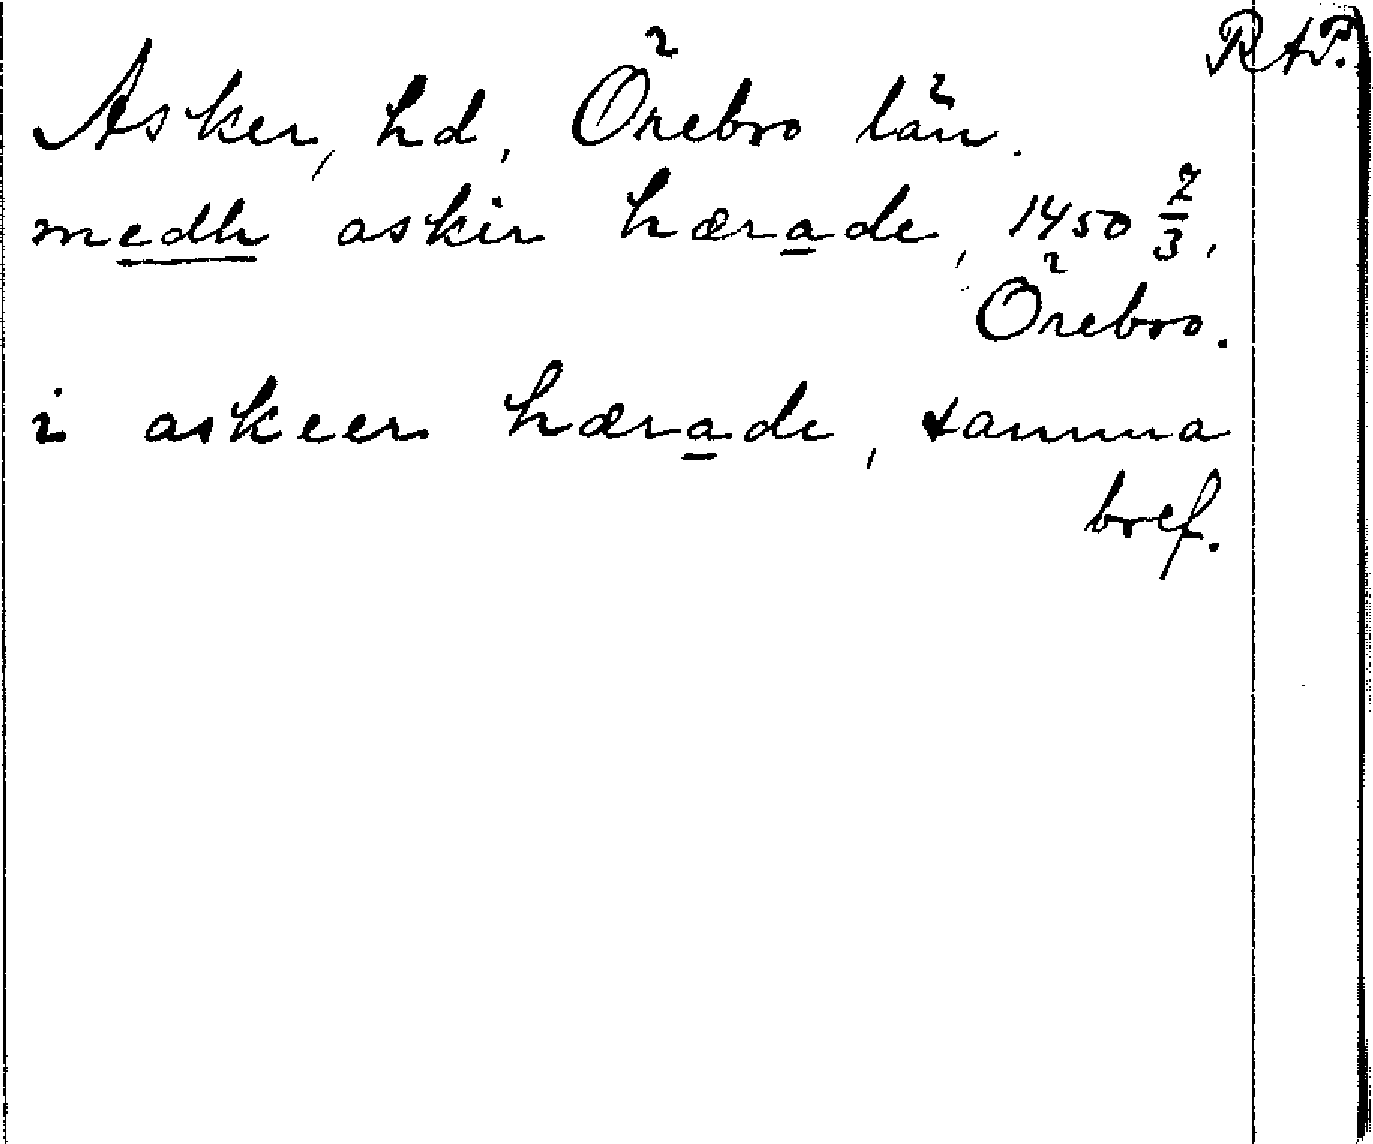 RAP.
Asker, hd, Örebro län.
medh askir hærade, 1450 2/3,
Örebro.
i askeer hærade, samma
bref.